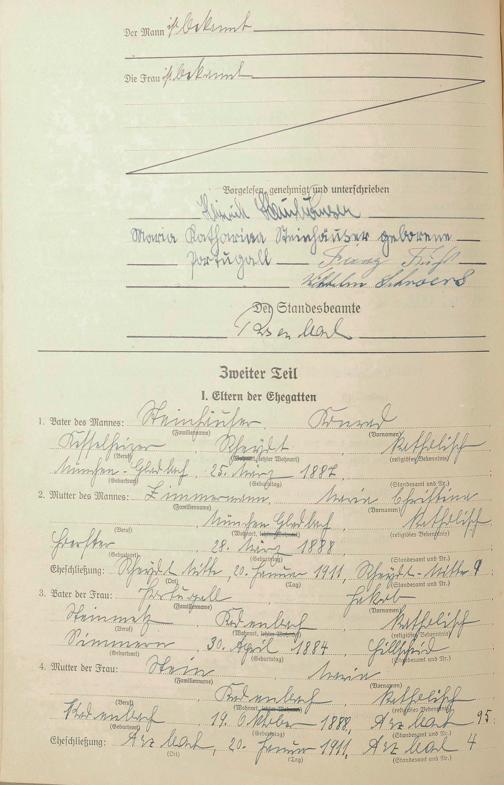 Der Mann ist bekannt
Die Frau ist bekannt
Vorgelesen, genehmigt und unterschrieben
Heinrich Steinhäuser
Maria Katharina Steinhäuser geborene
Portugall Franz
Wilhelm Schroers
Der Standesbeamte
Zweiter Teil
I. Eltern der Ehegatten
1. Vater des Mannes: Steinhäuser Konrad
(Familienname) (Vornamen)
Kesselheizer Rheydt katholisch
(Beruf) (Wohnort, letzter Wohnort) (religiöses Bekenntnis)
München-Gladbach 25. März 1887
(Geburtsort) (Geburtstag) (Standesamt und Nr.)
2. Mutter des Mannes: Zimmermann Maria Christina
(Familienname) (Vornamen)
München Gladbach katholisch
(Beruf) (Wohnort, letzter Wohnort) (religiöses Bekenntnis)
28. März 1888
(Geburtsort) (Geburtstag) (Standesamt und Nr.)
Eheschließung: Rheydt-Mitte, 20. Januar 1911, Rheydt-Mitte 9
(Ort) (Tag) (Standesamt und Nr.)
3. Vater der Frau: Portugall Jakob
(Familienname) (Vornamen)
Steinmetz Kadenbach katholisch
(Beruf) (Wohnort, letzter Wohnort) (religiöses Bekenntnis)
Simmern 30. April 1884 Hillscheid
(Geburtsort) (Geburtstag) (Standesamt und Nr.)
4. Mutter der Frau: Stein Maria
(Familienname) (Vornamen)
Kadenbach katholisch
(Beruf) (Wohnort, letzter Wohnort) (religiöses Bekenntnis)
Kadenbach 19. Oktober 1888, Arzbach 95
(Geburtsort) (Geburtstag) (Standesamt und Nr.)
Eheschließung: Arzbach, 20. Januar 1911, Arzbach 4
(Ort) (Tag) (Standesamt und Nr.)